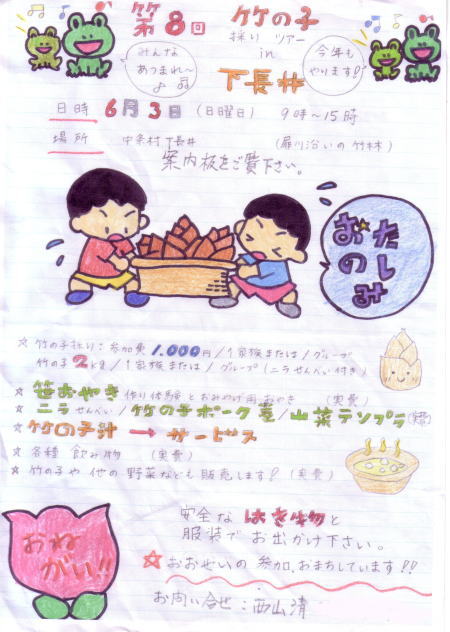 第8回 竹の子
採り ツアー
in
下長井
みんな
あつまれ〜
今年も
やります!
日時 6月3日 (日曜日) 9時〜15時
場所 中条村下長井 (扉川沿いの竹林)
案内板をご覧下さい。
おたのしみ
☆ 竹の子採り:参加費1.000円/1家族または/グループ
竹の子2kg/1家族または/グループ(ニラせんべい付き)
☆ 笹おやき 作り体験とおみやげ用おやき (実費)
☆ ニラせんべい/竹の子ポーク煮/山菜テンプラ(実費)
☆ 竹の子汁 → サービス
☆ 各種 飲み物 (実費)
☆ 竹の子や他の野菜なども販売します! (実費)
おねがい!!
安全なはき物と
服装でお出かけ下さい。
☆ おおぜいの参加、おまちしています!!
お問い合せ:西山清